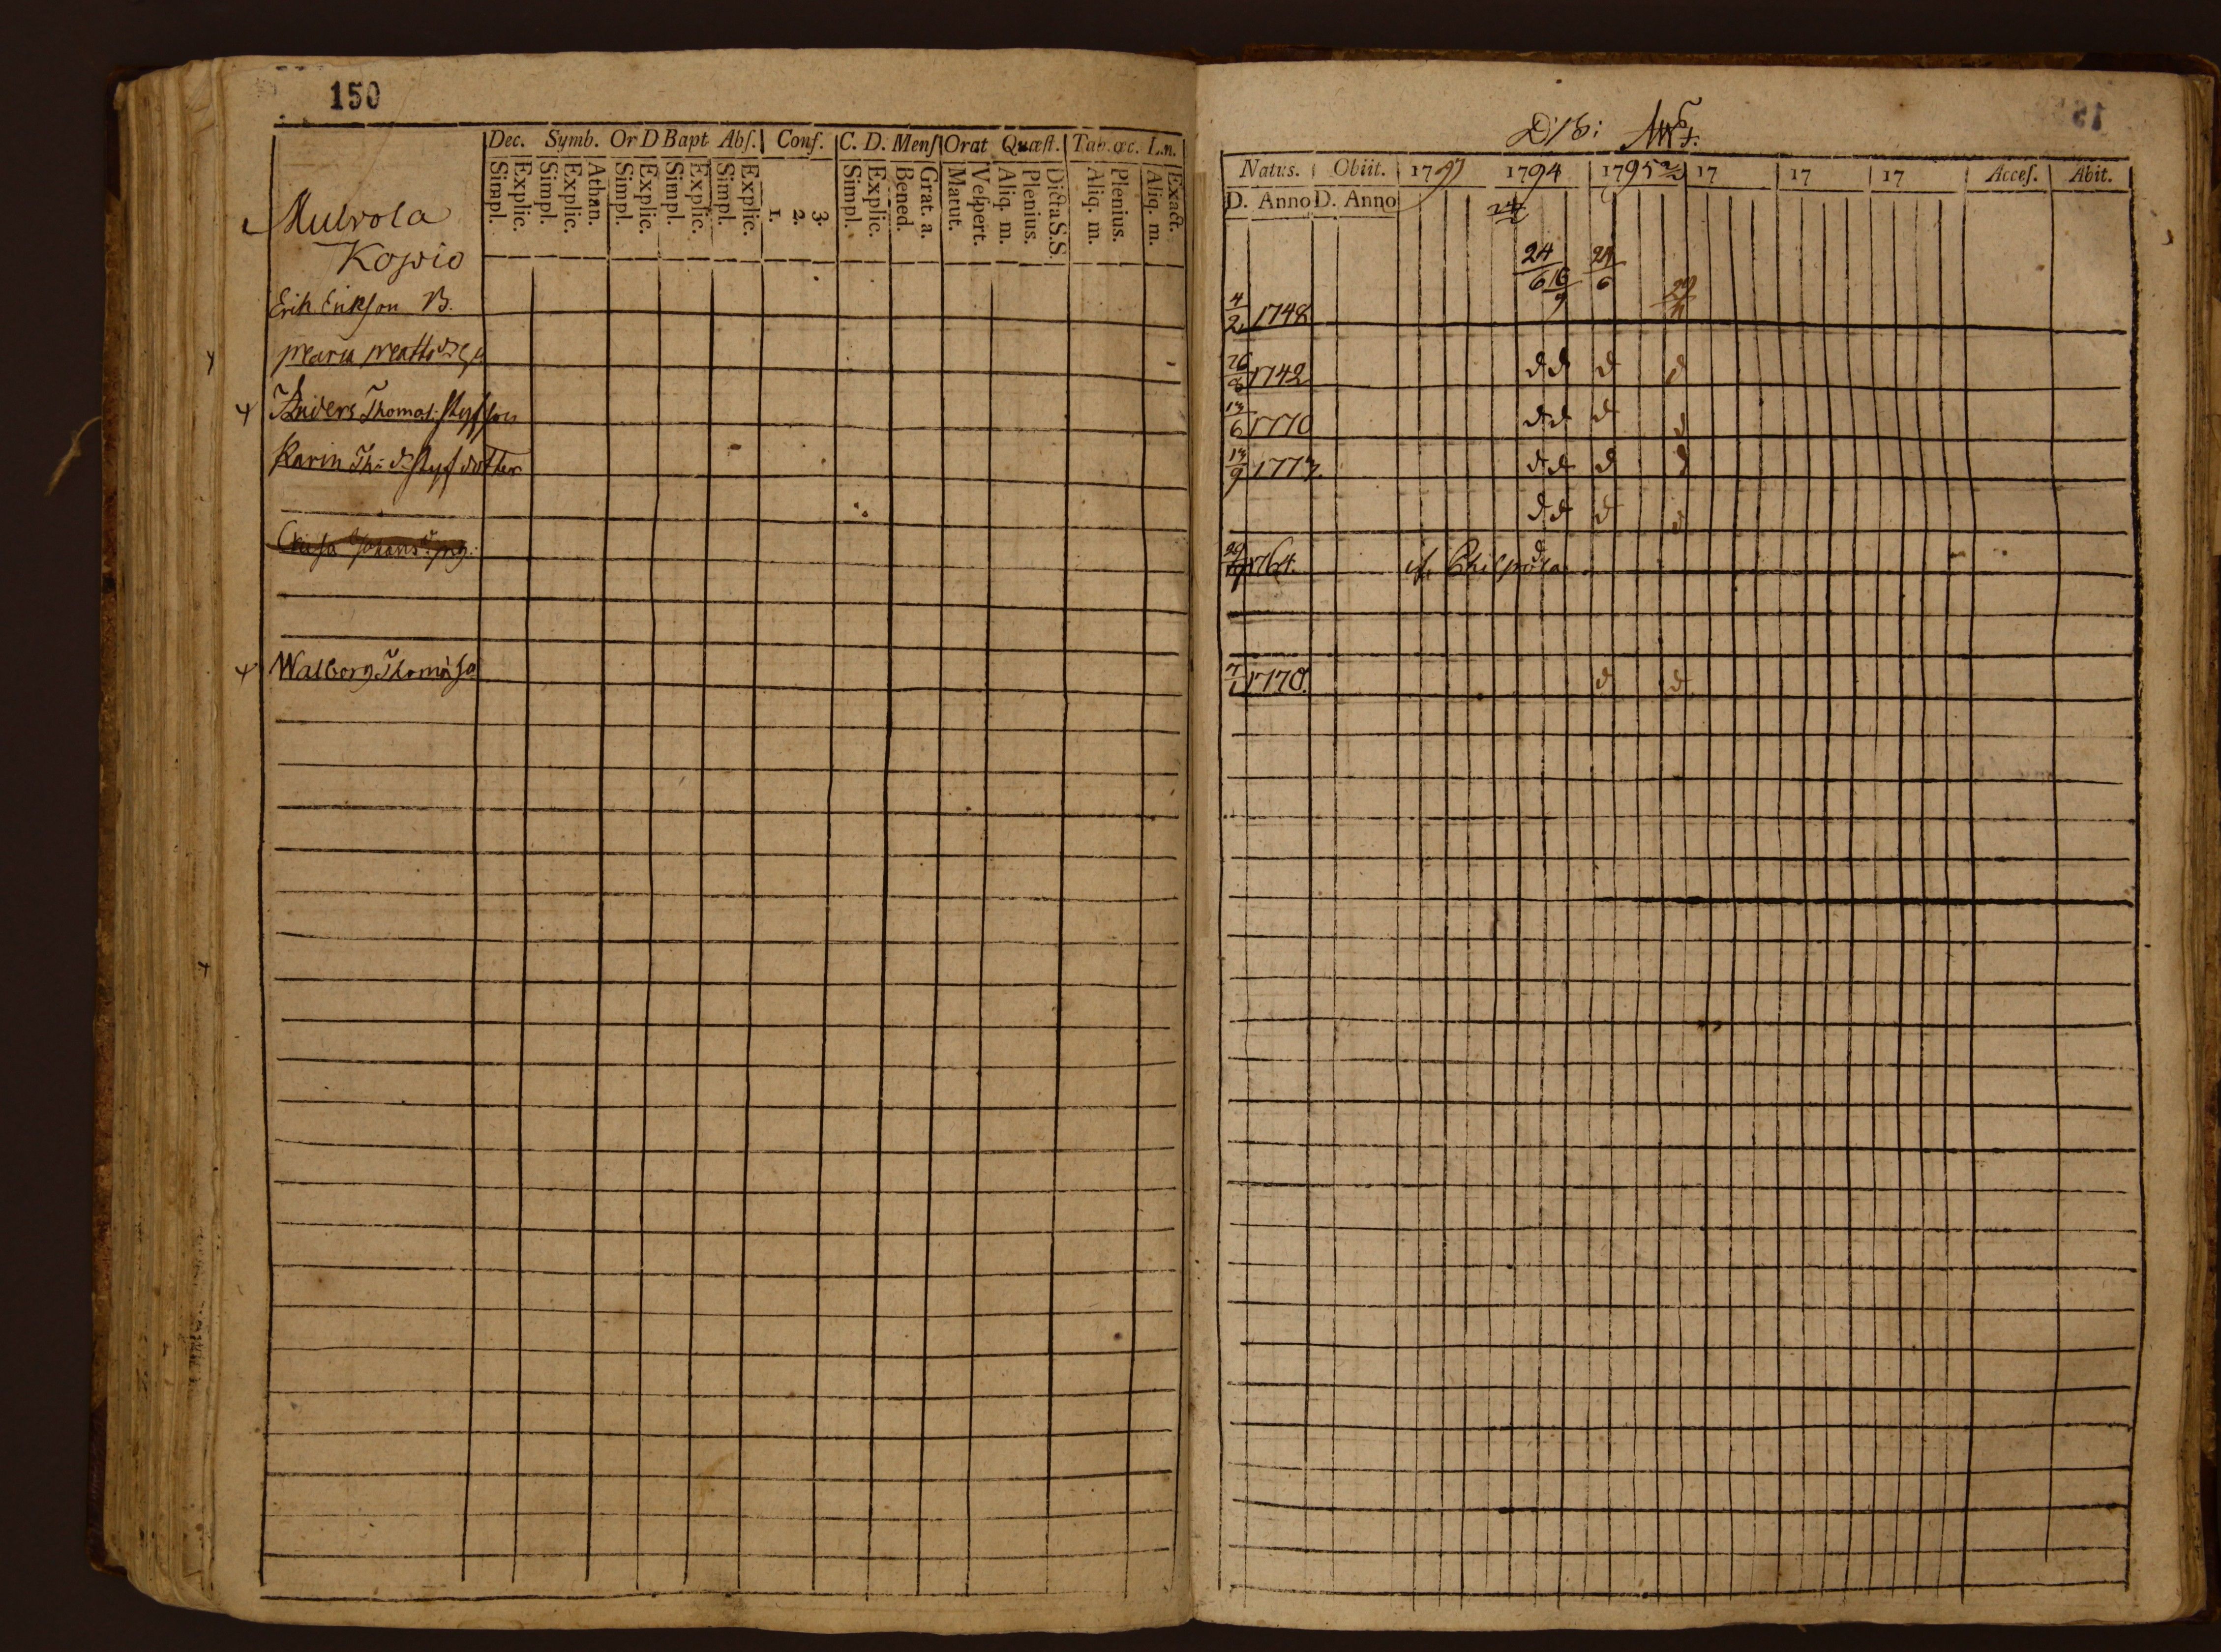 150
Dec. Symb. Or D Bapt Abſ. Conſ. C. D. Menſ Orat Quæſt. Tab. œc. L.n.
Simpl. Explic. Simpl. Explic. Athan. Simpl. Explic. Simpl. Explic. Simpl. Explic. 1. 2. 3. Simpl. Explic. Bened. Grat. a. Matut. Veſpert. Aliq. m. Plenius. Dicta S.S. Aliq. m. Plenius. Aliq. m. Exact.
Mulrola
Kopio
Erik Erikſon B.
Maria Matts
Anders Thomas: ſtyfſon
Karin Th: d: ſtyf dotter
Walborg Thomæ
Natus. Obiit. 17 1794 1795 17 17 17 Acceſ. Abit.
D. Anno D. Anno
24/6 16/9 24/6 29/4
4/2 1748
26/8 1742 d d d d
13/6 1770 d d d d
13/9 1773 d d d d
d d d d
1764.
7/1 1770. d d